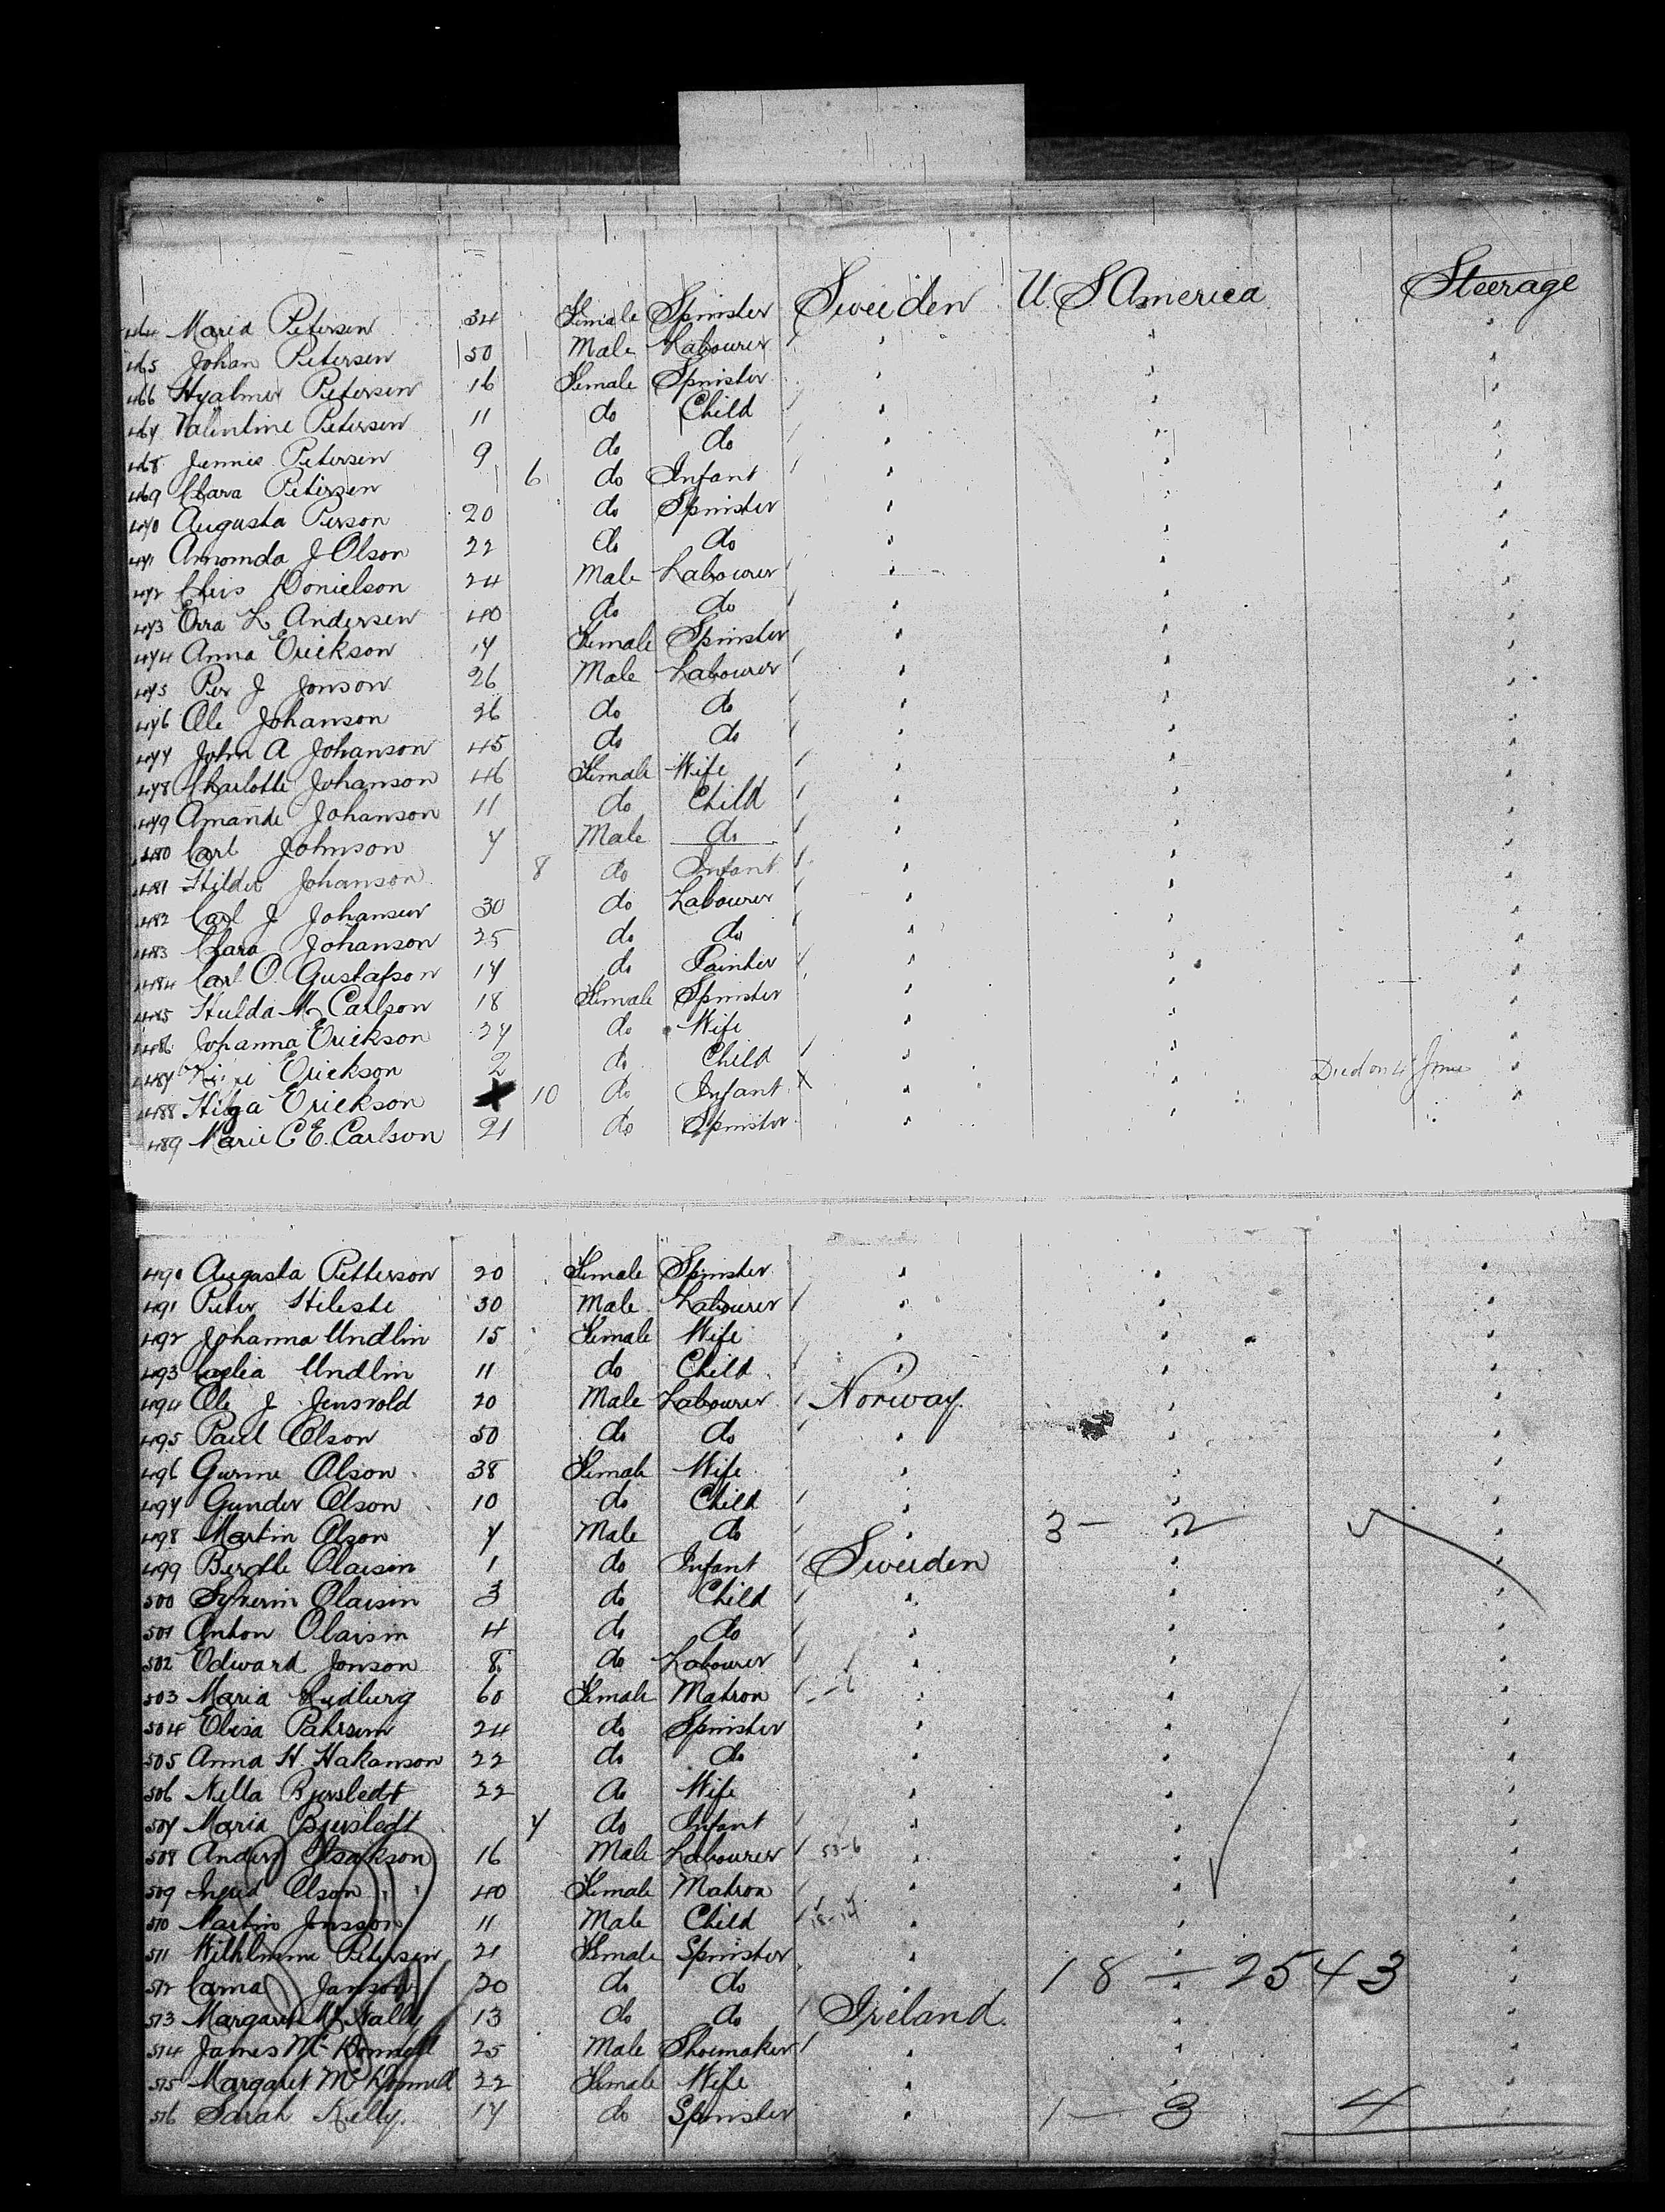 Sweden U. S America Steerage
464 Maria Petersen 34 Female Spinster
465 Johan Petersen 50 Male Labourer
466 Hyalmer Petersen 16 Female Spinster
467 Valentine Petersen 11 do Child
468 Jennie Petersen 9 do do
469 Clara Petersen 6 do Infant
470 Augusta Person 20 do Spinster
471 Amomda J Olson 22 do do
472 Chris Donielson 24 Male Labourer
473 Erra L Andersen 40 do do
474 Anna Erickson 17 Female Spinster
475 Per J Jonson 26 Male Labourer
476 Ole Johanson 26 do do
477 John A Johanson 45 do do
478 Charlotte Johanson 46 Female Wife
479 Amande Johanson 11 do Child
480 Carl Johnson 7 Male do
481 Hilder Johanson 8 do Infant
482 Carl J Johanson 30 do Labourer
483 Clara Johanson 25 do do
484 Carl O. Gustafson 17 do Painter
485 Hulda M Carlson 18 Female Spinster
486 Johanna Erickson 27 do Wife
487 Erickson 2 do Child
488 Hilga Erickson 10 do Infant X Died on 4 June
489 Marie C E. Carlson 21 do Spinster
490 Augasta Petterson 20 Female Spinster
491 Peter Hileste 30 Male Labourer
492 Johanna Undlin 15 Female Wife
493 Undlin 11 do Child
494 Ole J Jensvold 20 Male Labourer Norway
495 Paul Olson 50 do do
496 Gurine Olson 38 Female Wife
497 Gunder Olson 10 do Child
498 Martin Olson 7 Male do 3 - 2 5
499 Olaisin 1 do Infant Sweden
500 Olaisin 3 do Child
501 Anton Olaisin 4 do do
502 Edward Jonson 8 do Labourer
503 Maria 60 Female Matron - 6
504 Elisa 24 do Spinster
505 Anna H Hakanson 22 do do
506 Nella Bjursledt 22 do Wife
507 Maria Bjursledt 7 do Infant
508 Anders Isakson 16 Male Labourer 53-6
509 Ingrid Olson 40 Female Matron
510 Martin Jonsson 11 Male Child 18-14
511 Wilhlmine Petersen 21 Female Spinster
512 Carna Janson 20 do do 18 - 25 43
513 Margaret Mc Nally 13 do do Ireland
514 James Mc Donnell 25 Male Shoemaker
515 Margaret Mc Donnell 22 Female Wife
516 Sarah Kelly 17 do Spinster 1 - 3 4